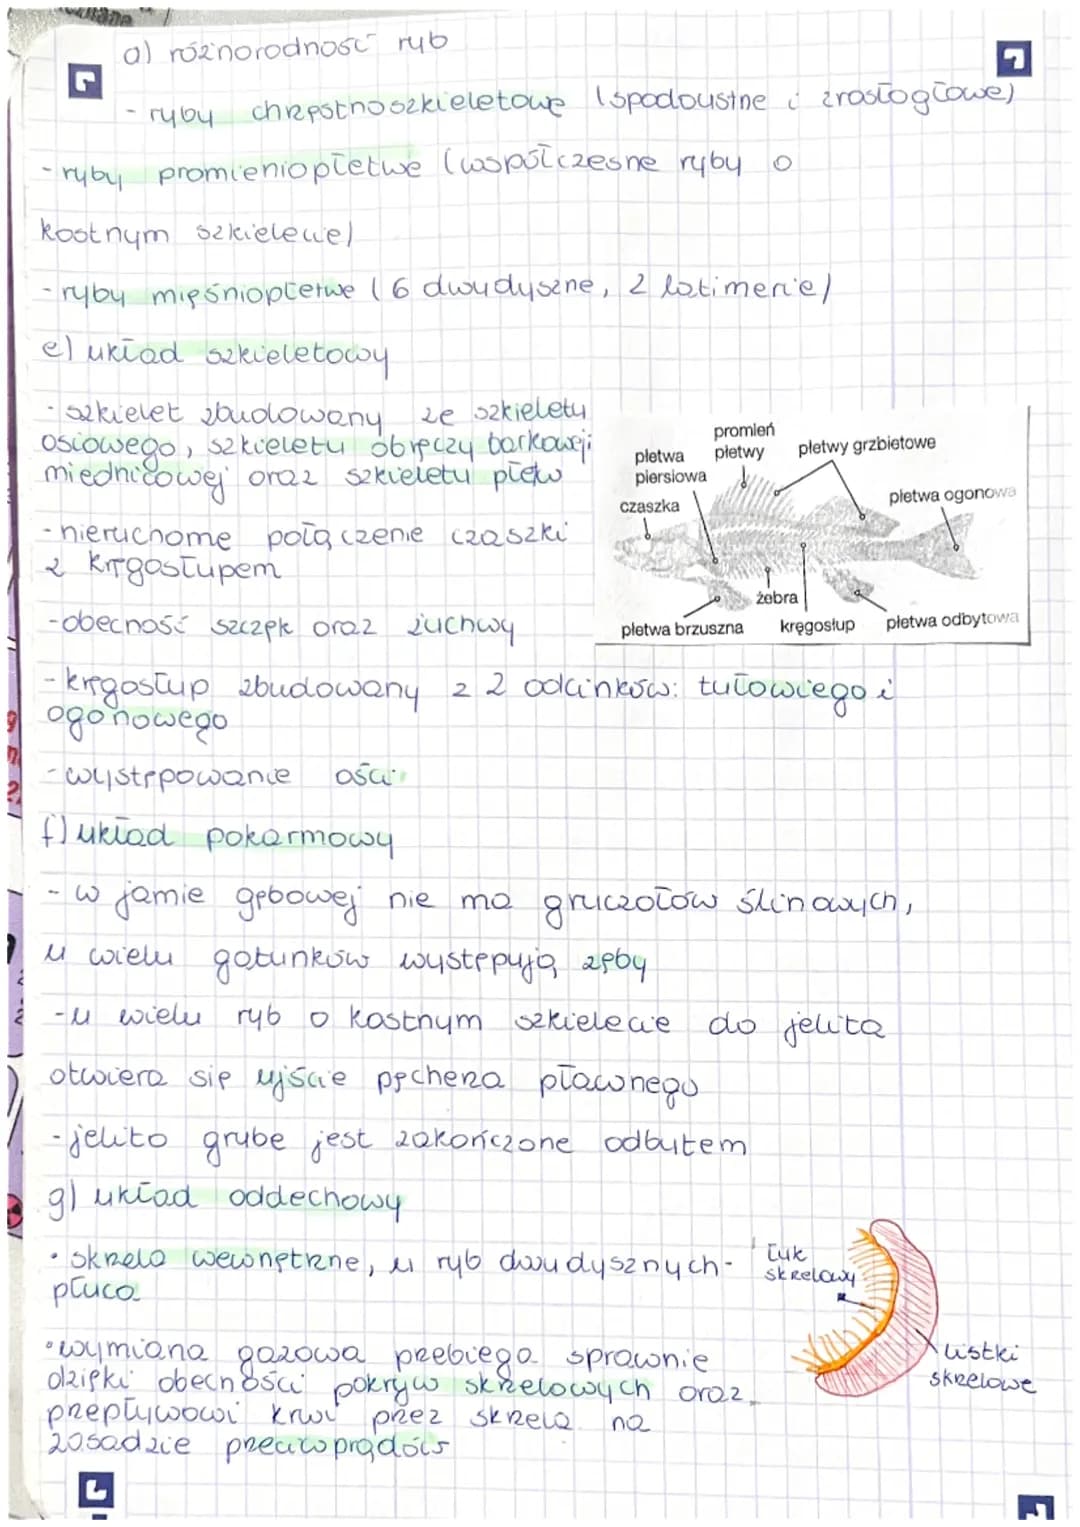 a) różnorodność ryb
- ryby chrzęstnoszkieletowe (spodouste i zrosłogłowe)
- ryby promieniopłetwe (współczesne ryby o
kostnym szkielecie)
- ryby mięśniopłetwe (6 dwudyszne, 2 latimerie)
e) układ szkieletowy
· szkielet zbudowany ze szkieletu
osiowego, szkieletu obręczy barkowej i
miednicowej oraz szkieletu płetw
- nieruchome połączenie czaszki
z kręgosłupem
- obecność szczęk oraz żuchwy
promień
płetwy
płetwy grzbietowe
płetwa
piersiowa
czaszka
płetwa ogonowa
żebra
płetwa brzuszna
kręgosłup
płetwa odbytowa
- kręgosłup zbudowany z 2 odcinków: tułowiego i
ogonowego
- występowanie ości
f) układ pokarmowy
- w jamie gębowej nie ma gruczołów ślinowych,
u wielu gatunków występują zęby
- u wielu ryb o kostnym szkielecie do jelita
otwiera się ujście pęcherza pławnego
- jelito grube jest zakończone odbytem
g) układ oddechowy
· skrzela wewnętrzne, u ryb dwudysznych -
płuca
łuk
skrzelowy
listki
skrzelowe
· wymiana gazowa przebiega sprawnie
dzięki obecności pokryw skrzelowych oraz
przepływowi krwi przez skrzela na
zasadzie przeciwprądów